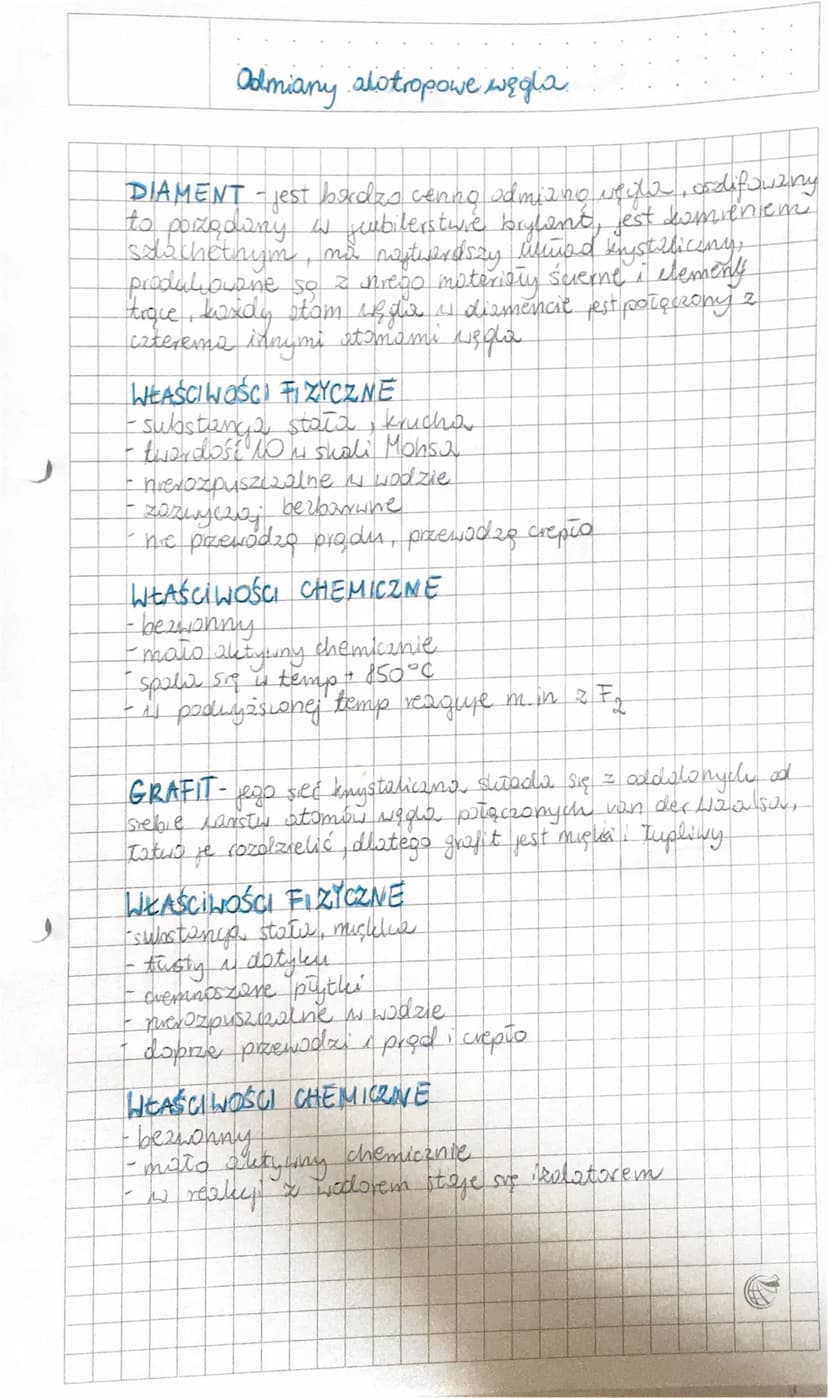 Odmiany alotropowe węgla
DIAMENT - jest bardzo cenną odmianą węgla, oszlifowany
to pożądany w jubilerstwie brylant, jest kamieniem
szlachetnym, ma najtwardszy układ krystaliczny,
produkowane są z niego materiały ścierne i elementy
trące, każdy atom węgla w diamencie jest połączony z
czterema innymi atomami węgla
WŁAŚCIWOŚCI FIZYCZNE
- substancja stała, krucha
- twardość 10 w skali Mohsa
- nierozpuszczalne w wodzie
- zazwyczaj bezbarwne
- nie przewodzą prądu, przewodzą ciepło
WŁAŚCIWOŚCI CHEMICZNE
- bezwonny
- mało aktywny chemicznie
- spala się w temp + 850°C
- w podwyższonej temp reaguje m.in z F₂
GRAFIT - jego sieć krystaliczna składa się z oddalonych od
siebie warstw atomów węgla połączonych van der Waalsa,
łatwo je rozdzielić, dlatego grafit jest miękki i łupliwy
WŁAŚCIWOŚCI FIZYCZNE
- substancja stała, miękka
- tłusty w dotyku
- ciemnoszare płytki
- nierozpuszczalne w wodzie
- dobrze przewodzi prąd i ciepło
WŁAŚCIWOŚCI CHEMICZNE
- bezwonny
- mało aktywny chemicznie
- w reakcji z wodorem staje się izolatorem